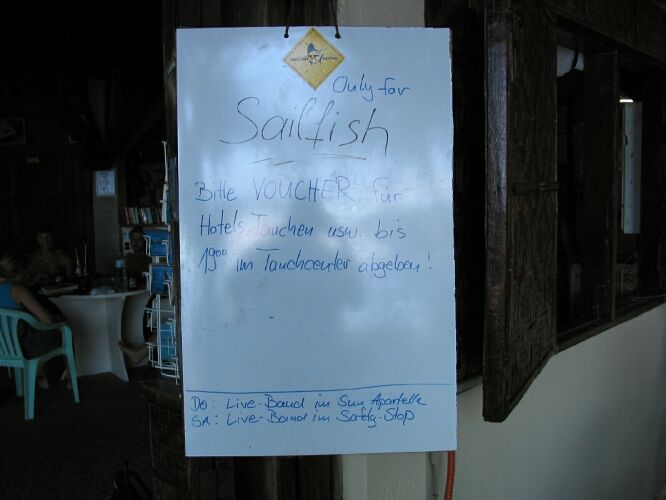 Only for
Sailfish
Bitte VOUCHER für
Hotels, Tauchen usw. bis
19⁰⁰ im Tauchcenter abgeben!
Do: Live-Band im Sun Apartelle
SA: Live-Band im Safety-Stop